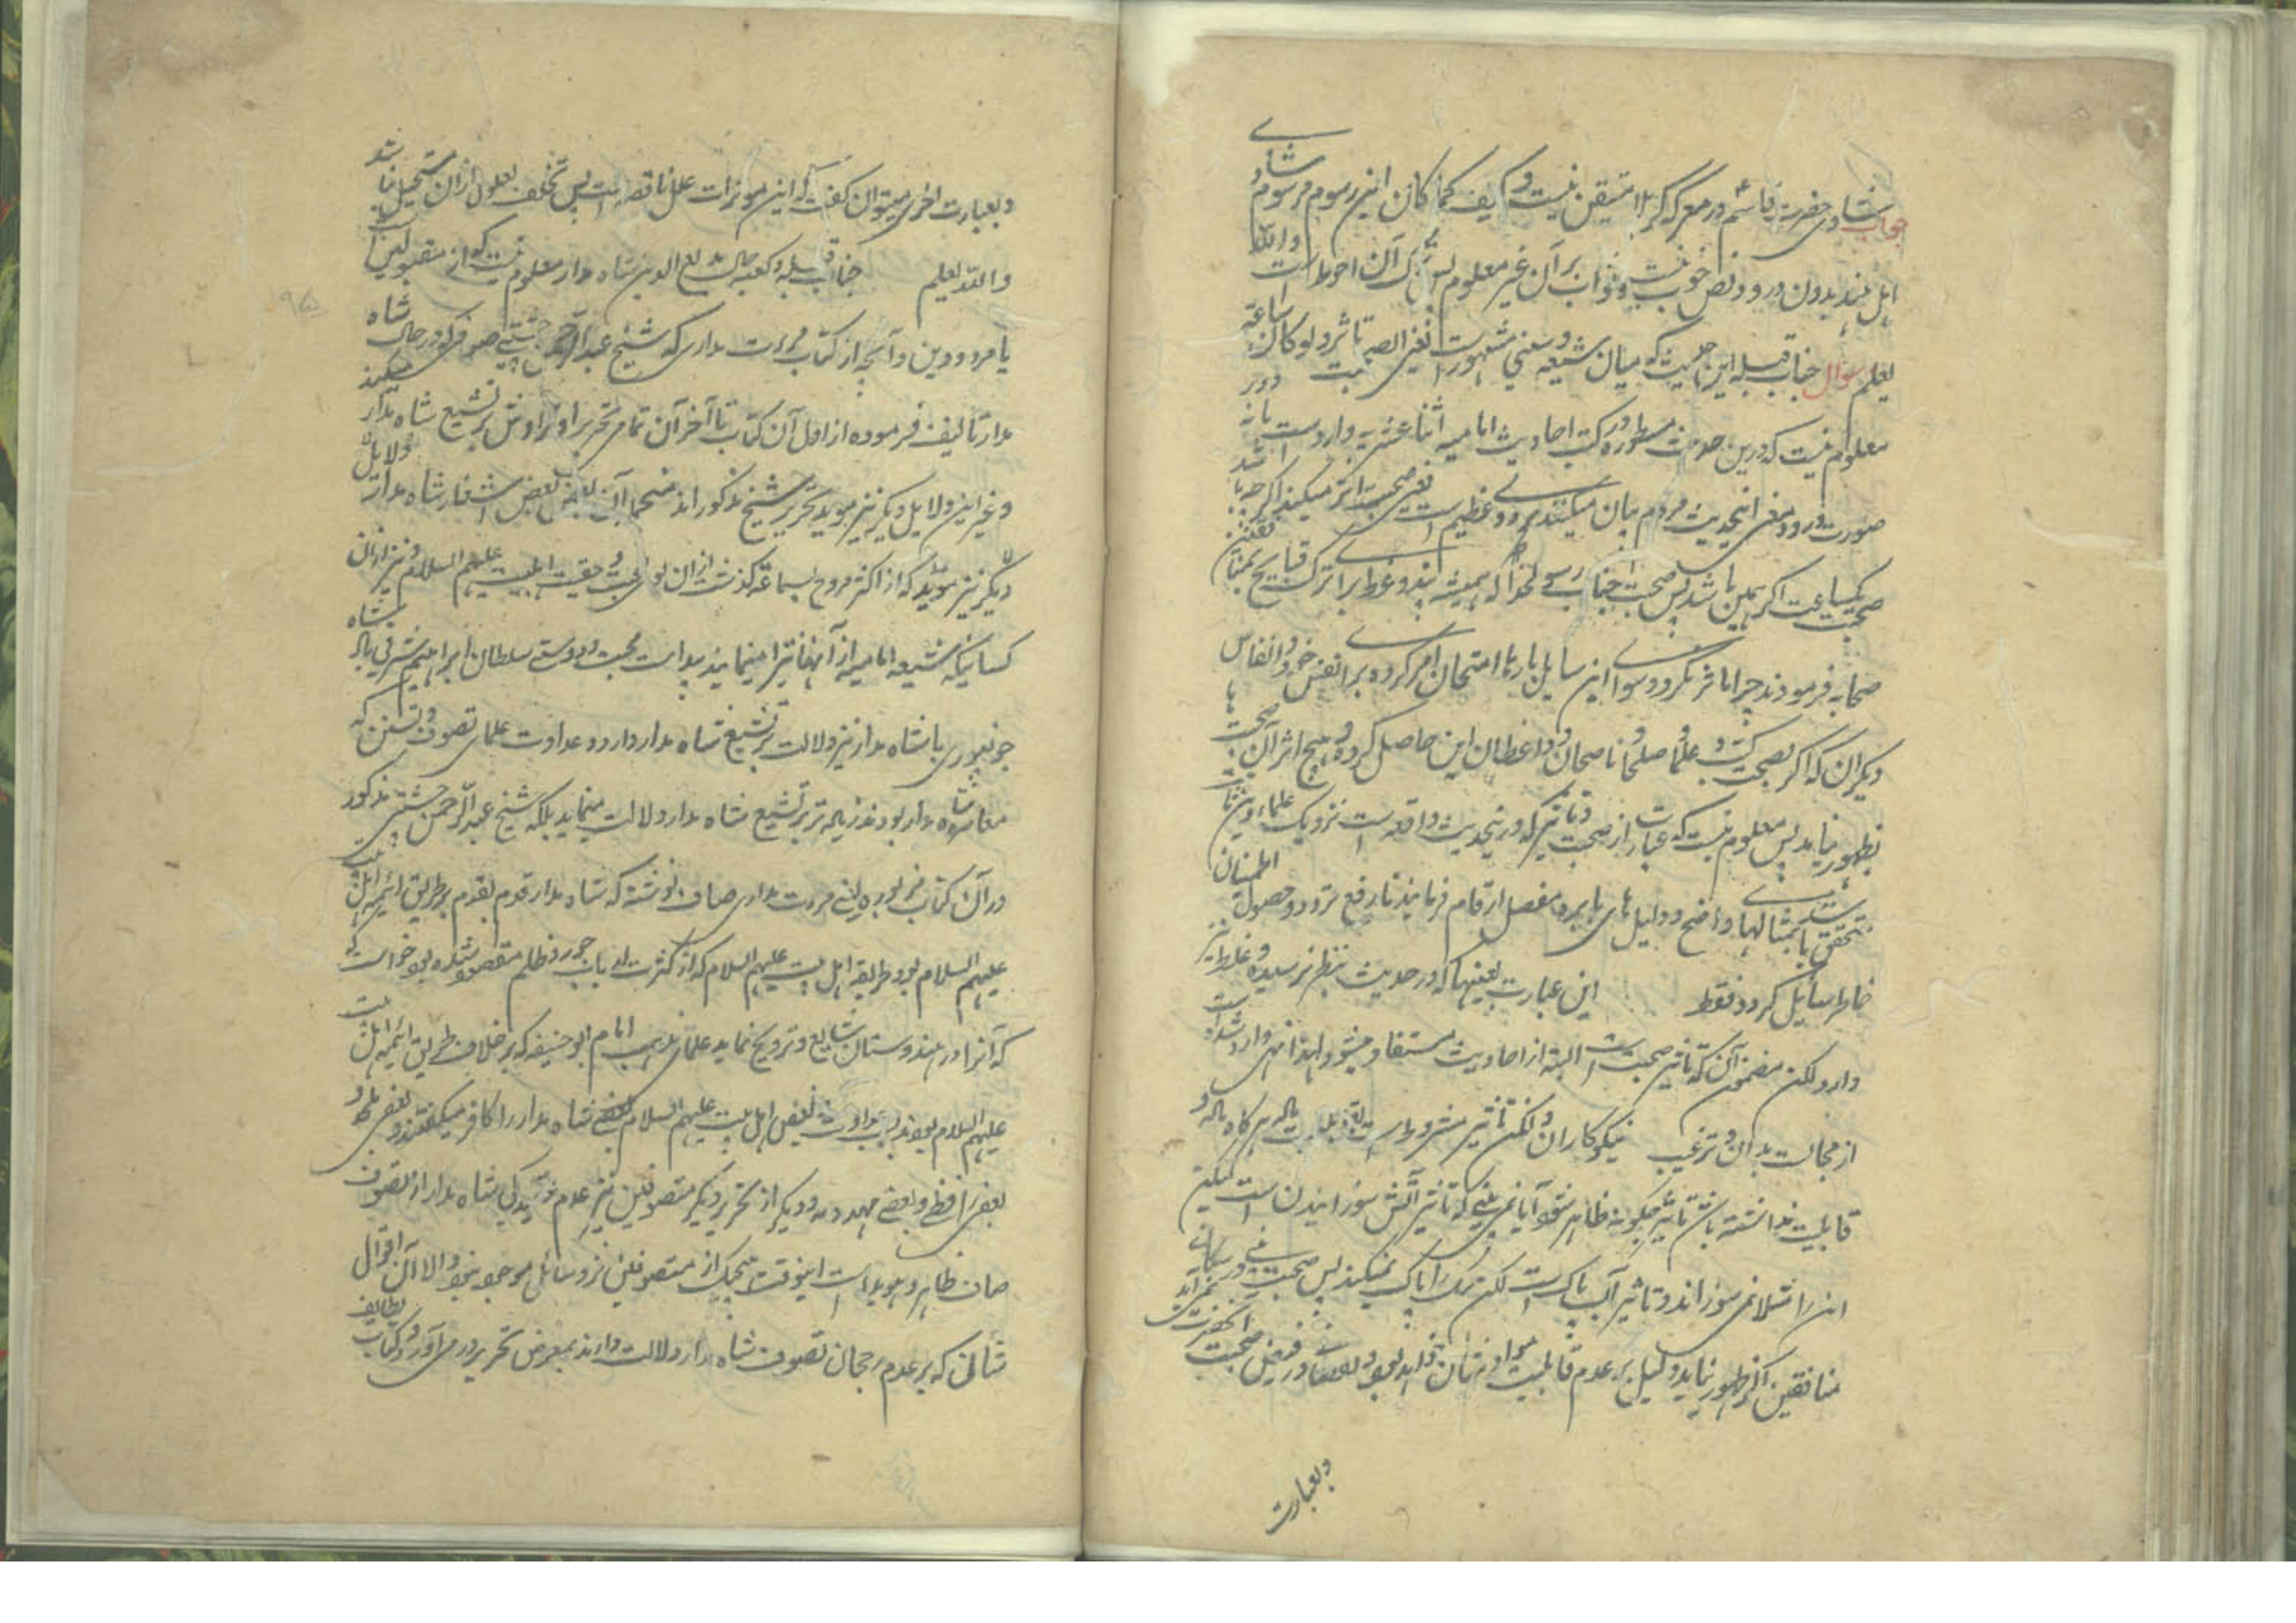 جواب شادی حضرت قاسم ع در معرکه کربلا متیقن نیست و کیف کما کان این رسوم مرسوم شادی
اهل هند بدون ورود نص خوب نیست و ثواب بر آن غیر معلوم پس ترک آن احوط است والله
یعلم سوال جناب قبله این حدیث که میان شیعه و سنی مشهور است یعنی الصحبة تاثر ولو کان ساعة
معلوم نیست که درین حدیث مسطوره کتب احادیث امامیه اثنا عشریه وارد است یا نه در
صورت ورود معنی اینحدیث مردم بیان میکنند برود عظیم است یعنی صحبت اثر میکند اگرچه باشد
صحبت یکساعت اگر همین باشد پس صحبت جناب رسول خدا که همیشه پند و وعظ برای ترک قبایح
صحابه فرمودند چرا تاثر نکرد و سوای این سایل بارها امتحان امر کرده برای نفس خود و انفاس
دیگران که اکثر بصحبت علما و صلحا و ناصحان و واعظان این حاصل کرده و هیچ اثر آن صحبت
بظهور نیامد پس معلوم نیست که عبارت از صحبت و تاثیر که درینحدیث واقعه است نزدیک علماء دین
متحقق باشد بمثالها واضح و دلیل های باهره مفصل ارقام فرمایند تا رفع تردد و حصول اطمینان
خاطر سایل گردد فقط این عبارت بعینها که در حدیث بنظر نرسیده و غلط نیز
دارد لکن مضمون آن که تاثیر صحبت است البته از احادیث مستفاد میشود لهذا نهی وارد شده است
از مجالست بدان و ترغیب نیکوکاران و لکن تاثیر مشروط است بقابلیت ماده هرگاه ماده
قابلیت نداشته باشد تاثیر چگونه ظاهر شود آیا نمی بینی که تاثیر آتش سوزانیدن است لیکن
آن را مثلا نمی سوزاند و تاثیر آب پاک است لکن سگ را پاک نمیکند پس صحبت
منافقین اگر بظهور نیاید دلیل بر عدم قابلیت مواد ایشان خواهد بود در فیض صحبت آنحضرت
وبعبارت
وبعبارت اخری میتوان گفت که این موثرات علل ناقصه است پس تخلف معلول از آن مستحیل نباشد
والله یعلم جناب قبله و کعبه حال بدیع الدین شاه مدار معلوم نیست که از مقبولین است
یا مردودین و آنچه از کتاب مرءات مداری که شیخ عبدالرحمن چشتی صوفی در حال شاه
مدار تالیف فرموده از اول آن کتاب تا آخر آن تمامی تحریر او تراوش بر تشیع شاه مدار میکند
و غیر این دلایل دیگر نیز موید تحریر شیخ مذکور اند منجمله آن بعض اشعار شاه مدار دلایل
دیگر نیز موید که از اکثر مردم بسماعت گذشت از آن بوی محبت و حقیت اهلبیت علیهم السلام و نیز از آن
کسانیکه شیعه امامیه از آنها تبرا مینمایند پیداست محبت و دوستی سلطان ابراهیم شرقی بادشاه
جونپوری با شاه مدار نیز دلالت بر تشیع شاه مدار دارد و عداوت علمای تصوف و تسنن که
معاصر شاه مدار بودند زیاده تر بر تشیع شاه مدار دلالت مینماید بلکه شیخ عبدالرحمن چشتی مذکور
در آن کتاب مزبوره یعنی مرءت مداری صاف نوشته که شاه مدار قدم بقدم بر طریق ائمه اهل بیت
علیهم السلام بود و طریقه اهل بیت علیهم السلام که از کثرت ارباب جور و ظلم مفقود شده بود خواست که
که آنرا در هندوستان شایع و ترویج نماید علمای مذهب امام ابو حنیفه که بر خلاف طریق ائمه اهل بیت
علیهم السلام بودند بسبب عداوت بغض اهل بیت علیهم السلام بعضی شاه مدار را کافر میگفتند و بعضی ملحد و
بعضی رافضی و بعضی و دیگر از تحریر دیگر متصوفین نیز عدم شاه مدار از تصوف
صاف ظاهر و هویدا است اینوقت هیچیک از متصوفین نزد سائل موجود نبود والا آن اقوال
شانی که بر عدم رجحان تصوف شاه مدار دلالت دارند بمعرض تحریر در می آورد و کتاب لطایف